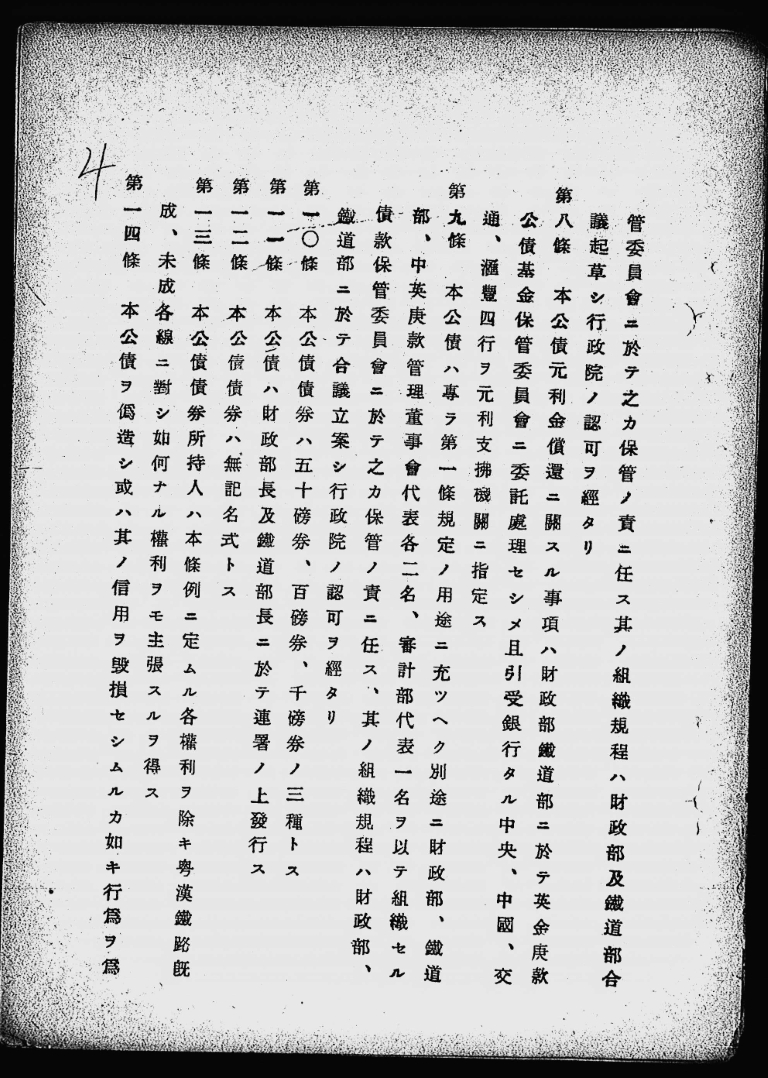 管委員會ニ於テ之カ保管ノ責ニ任ス其ノ組織規程ハ財政部及鐵道部合
議起草シ行政院ノ認可ヲ經タリ
第八條　本公債元利金償還ニ關スル事項ハ財政部鐵道部ニ於テ英金庚款
公債基金保管委員會ニ委託處理セシメ且引受銀行タル中央、中國、交
通、滙豐四行ヲ元利支拂機關ニ指定ス
第九條　本公債ハ專ラ第一條規定ノ用途ニ充ツヘク別途ニ財政部、鐵道
部、中英庚款管理董事會代表各二名、審計部代表一名ヲ以テ組織セル
債款保管委員會ニ於テ之カ保管ノ責ニ任ス、其ノ組織規程ハ財政部、
鐵道部ニ於テ合議立案シ行政院ノ認可ヲ經タリ
第一〇條　本公債債券ハ五十磅券、百磅券、千磅券ノ三種トス
第一一條　本公債ハ財政部長及鐵道部長ニ於テ連署ノ上發行ス
第一二條　本公債債券ハ無記名式トス
第一三條　本公債債券所持人ハ本條例ニ定ムル各權利ヲ除キ粤漢鐵路既
成、未成各線ニ對シ如何ナル權利ヲモ主張スルヲ得ス
第一四條　本公債ヲ僞造シ或ハ其ノ信用ヲ毀損セシムルカ如キ行爲ヲ爲
4